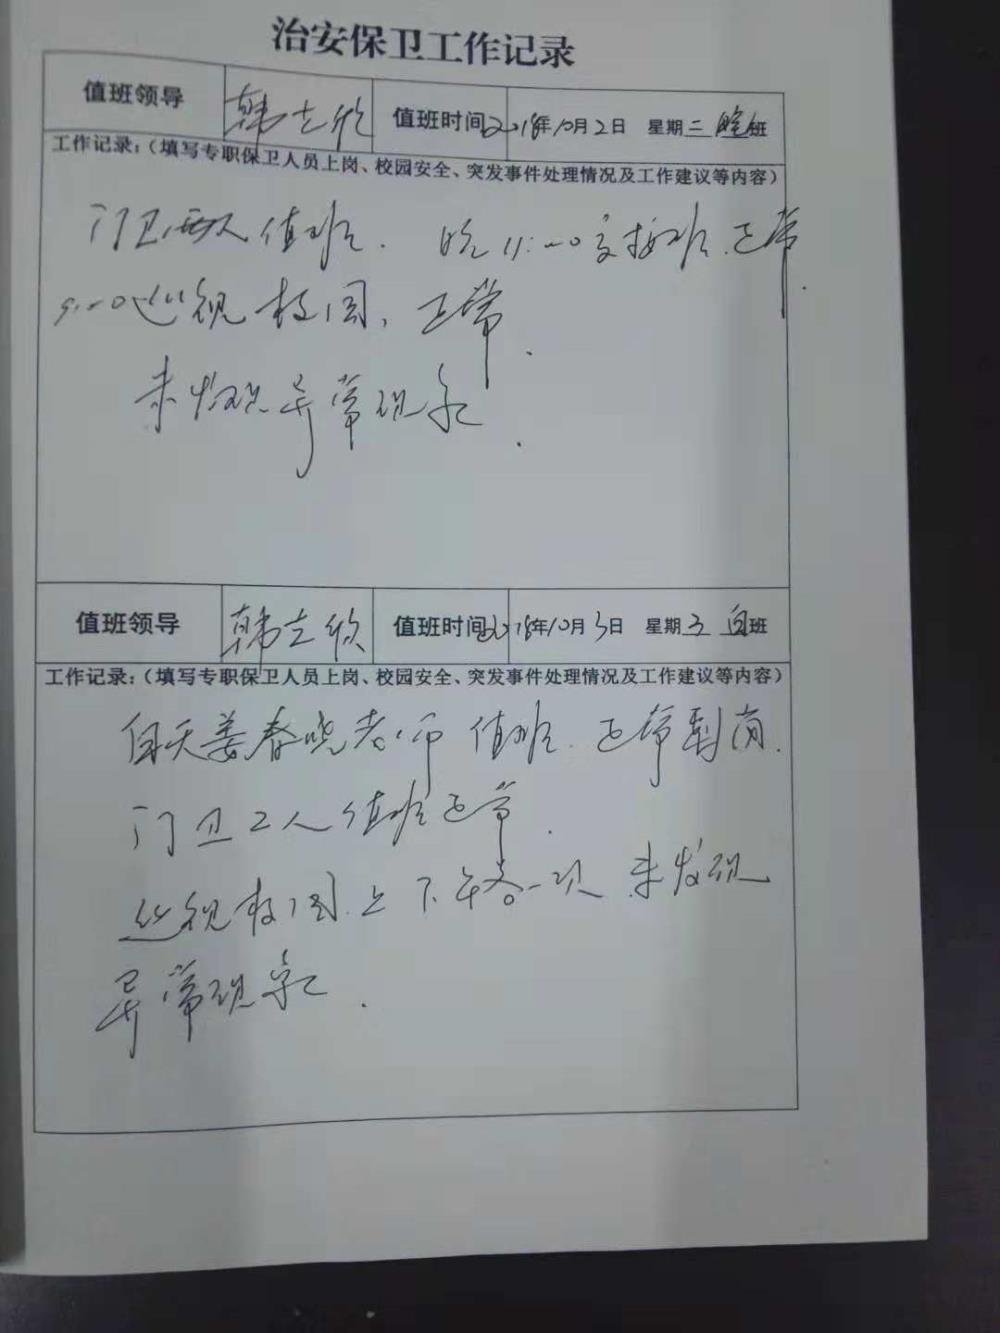 治安保卫工作记录
值班领导 韩志欣 值班时间 2018年10月2日 星期二 晚班
工作记录：（填写专职保卫人员上岗、校园安全、突发事件处理情况及工作建议等内容）
门卫两人值班. 晚11:00交接班.正常.
巡视校园,正常.
未发现异常现象.
值班领导 韩志欣 值班时间 2018年10月3日 星期三 白班
工作记录：（填写专职保卫人员上岗、校园安全、突发事件处理情况及工作建议等内容）
白天姜春晓老师值班.正常到岗.
门卫2人值班正常.
巡视校园.上下午各一次 未发现
异常现象.